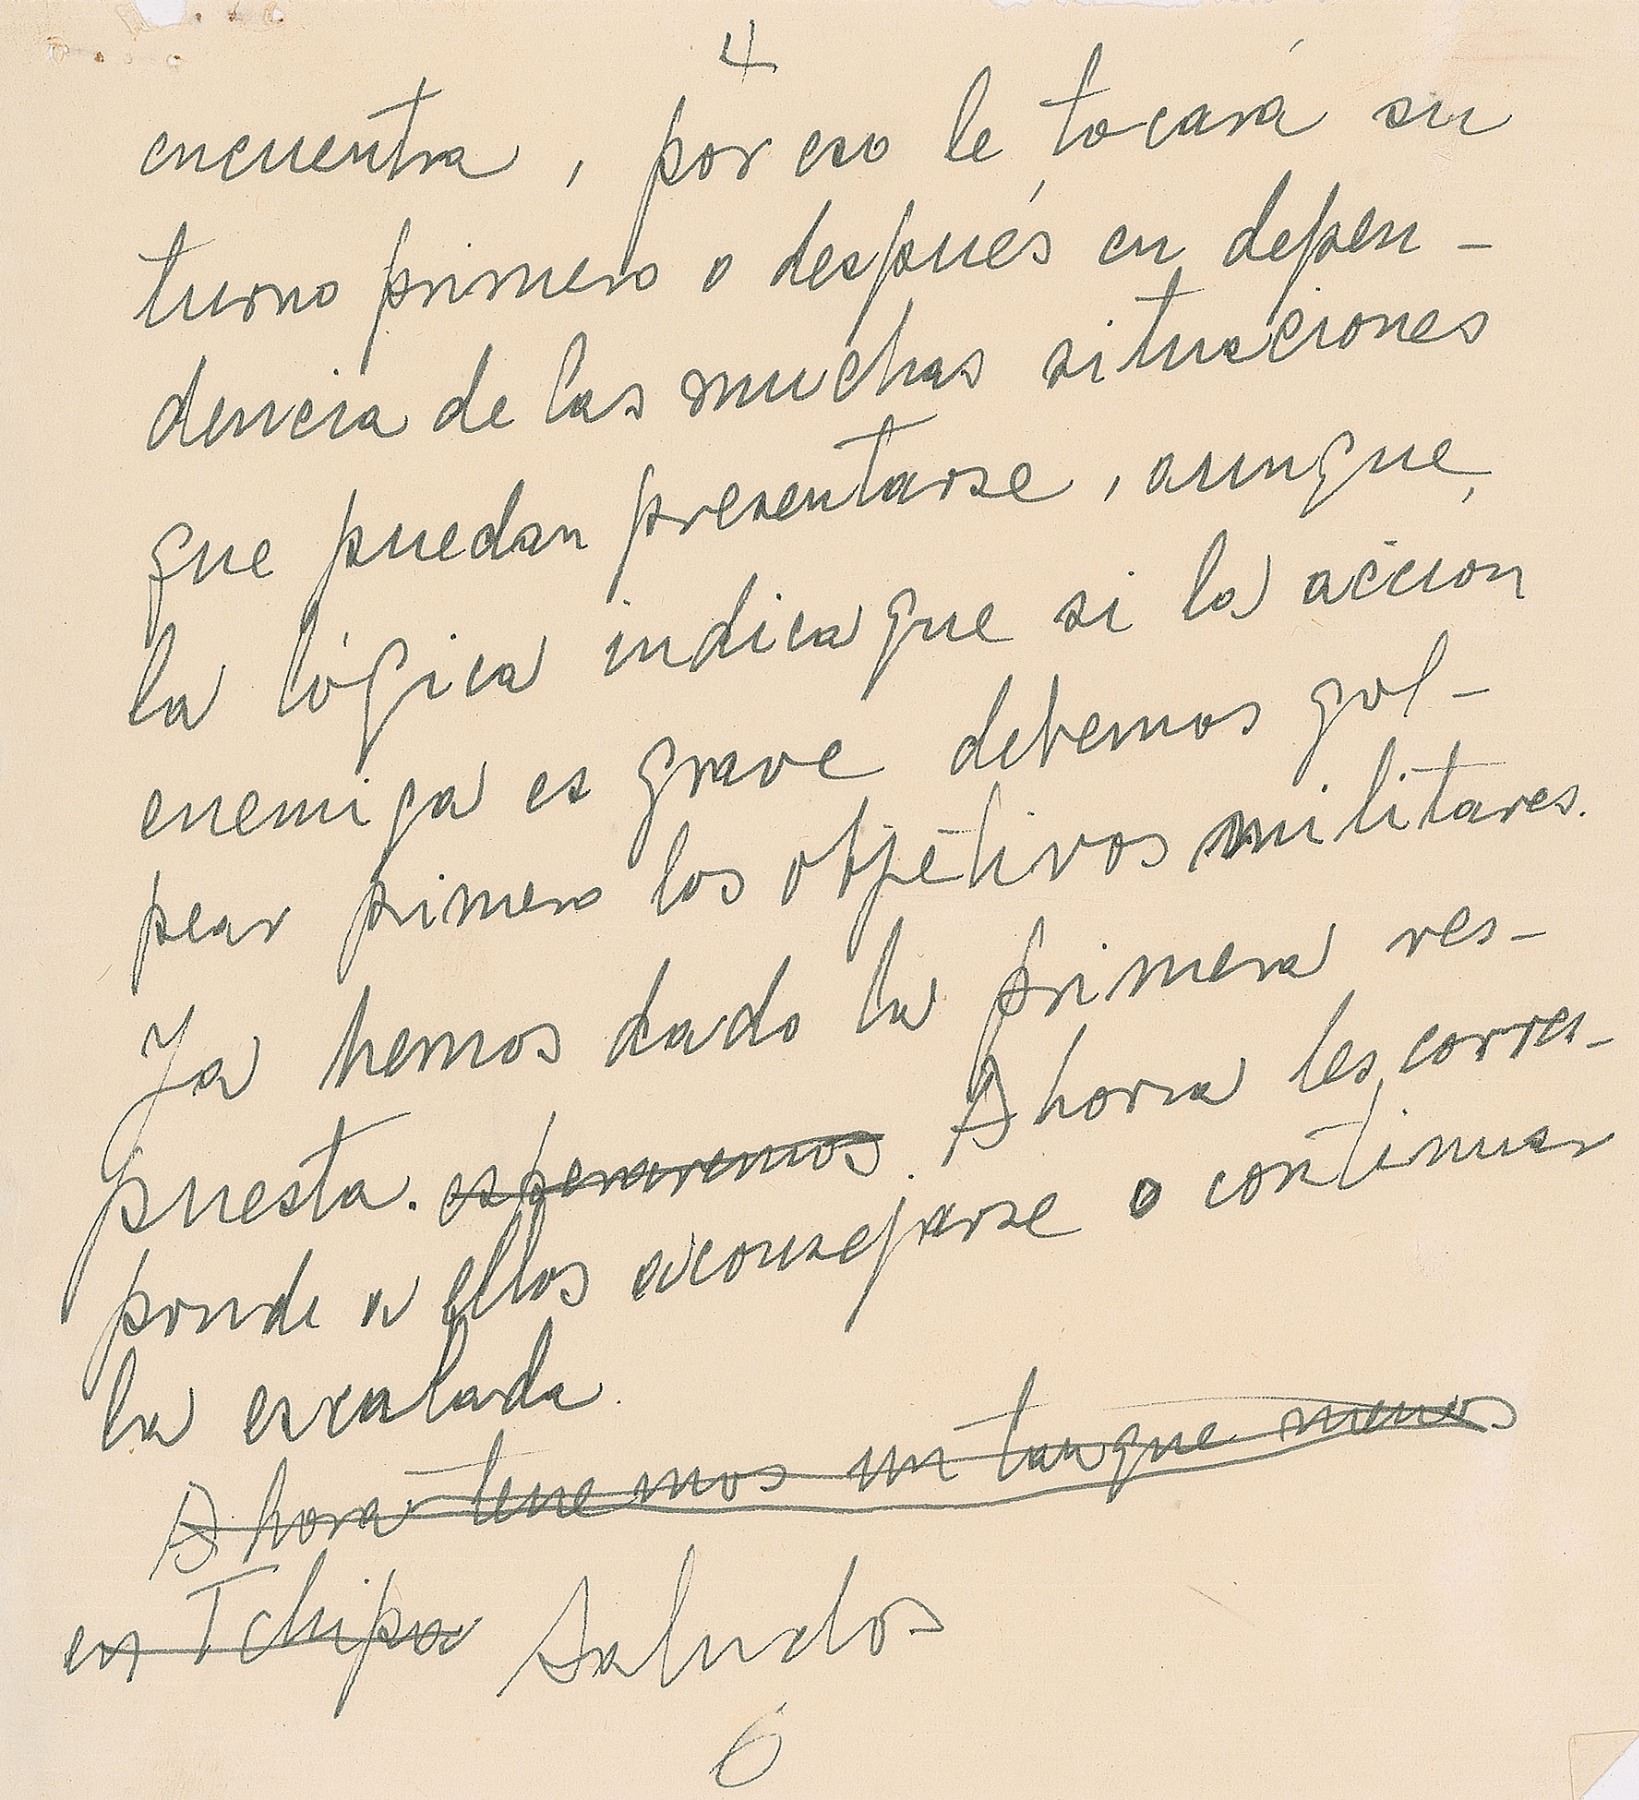 4
encuentra, por eso le tocará su
turno primero o después en depen-
dencia de las muchas situaciones
que puedan presentarse, aunque
la lógica indica que si la acción
enemiga es grave debemos gol-
pear primero los objetivos militares.
Ya hemos dado la primera res-
puesta. esperaremos. Ahora les corres-
ponde a ellos aconsejarse o continuar
la escalada.
Ahora tenemos un tanque menos
en Tchipa Saludos
6